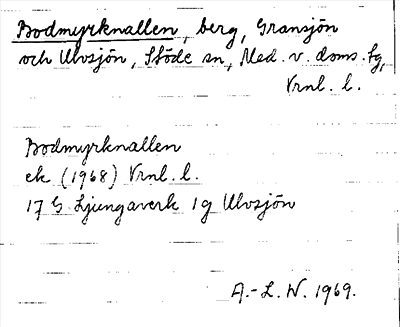 Bodmyrknallen, berg, Gransjön
och Ulvsjön, Stöde sn, Med. v. doms. fg,
Vrnl. l.
Bodmyrknallen
ek (1968) Vrnl. l.
17 G Ljungaverk 1g Ulvsjön
A.-L. W. 1969.